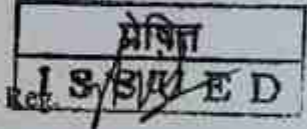 प्रेषित
ISSUED
Ref.